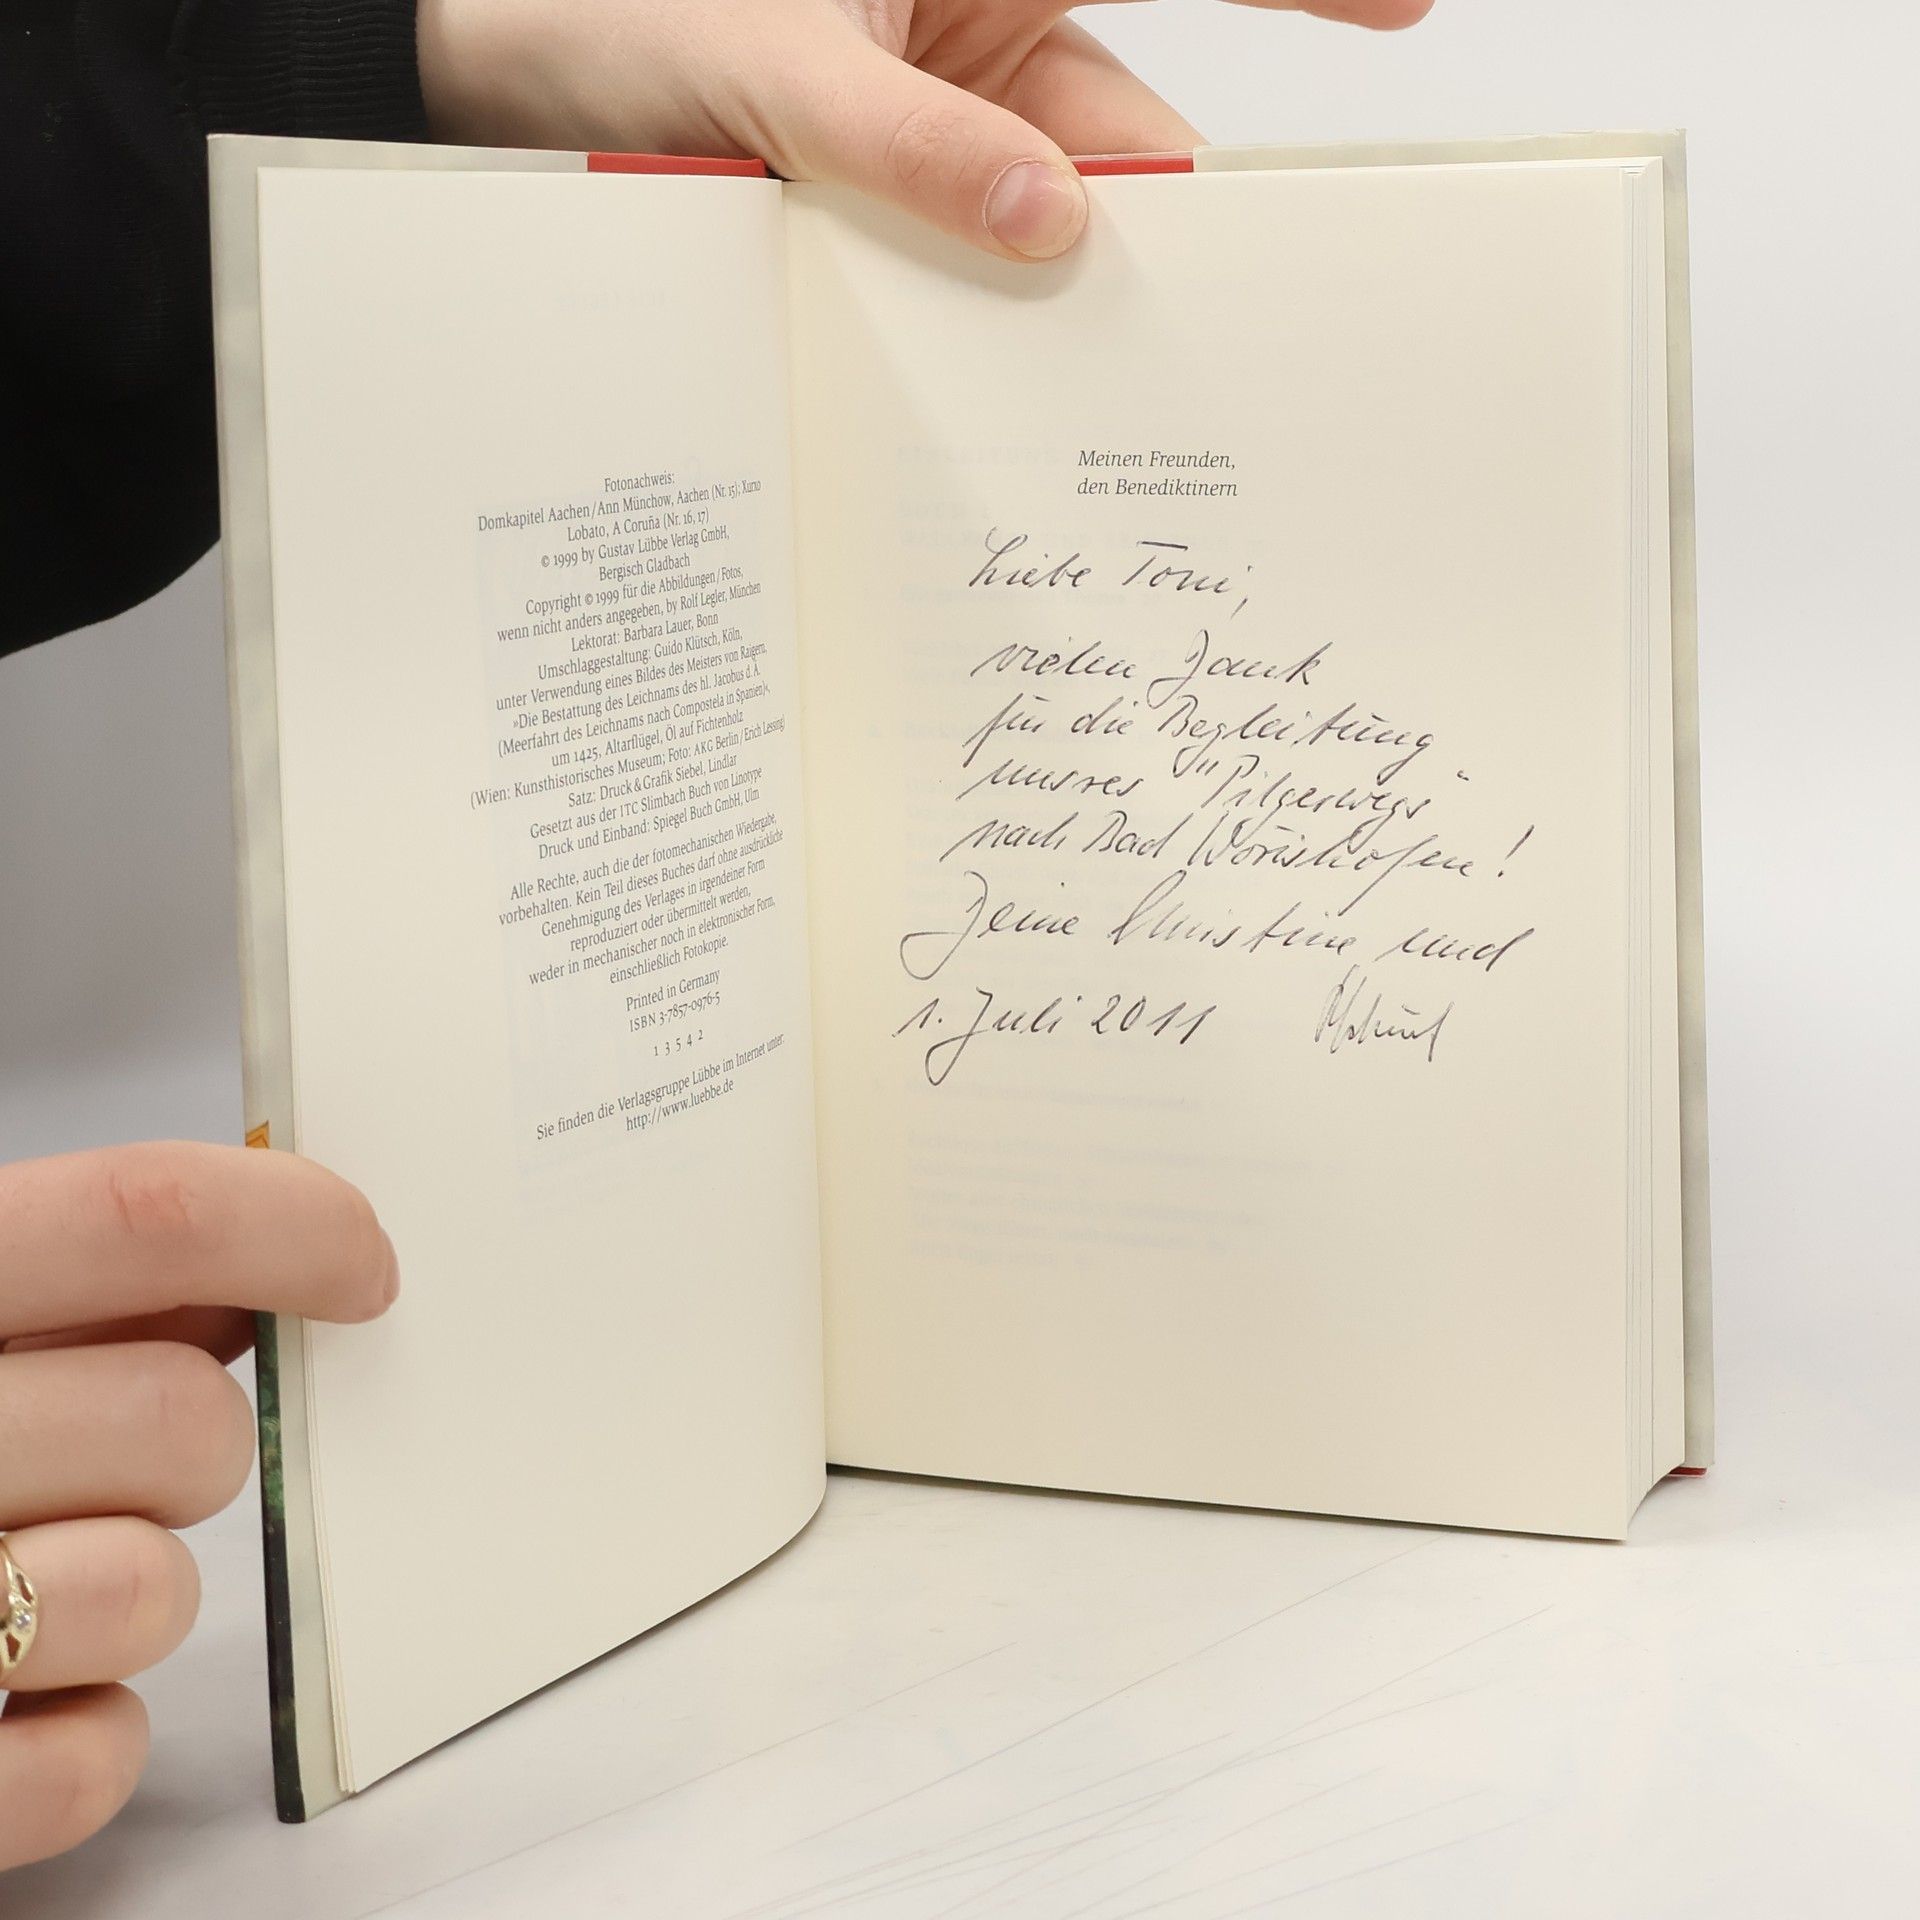 Fotonachweis:
Domkapitel Aachen/Ann Münchow, Aachen (Nr. 15); Xurxo
Lobato, A Coruña (Nr. 16, 17)
© 1999 by Gustav Lübbe Verlag GmbH,
Bergisch Gladbach
Copyright © 1999 für die Abbildungen/Fotos,
wenn nicht anders angegeben, by Rolf Legler, München
Lektorat: Barbara Lauer, Bonn
Umschlaggestaltung: Guido Klütsch, Köln,
unter Verwendung eines Bildes des Meisters von Raigern,
»Die Bestattung des Leichnams des hl. Jacobus d. Ä.
(Meerfahrt des Leichnams nach Compostela in Spanien)«,
um 1425, Altarflügel, Öl auf Fichtenholz
(Wien: Kunsthistorisches Museum; Foto: AKG Berlin/Erich Lessing)
Satz: Druck & Grafik Siebel, Lindlar
Gesetzt aus der ITC Slimbach Buch von Linotype
Druck und Einband: Spiegel Buch GmbH, Ulm
Alle Rechte, auch die der fotomechanischen Wiedergabe,
vorbehalten. Kein Teil dieses Buches darf ohne ausdrückliche
Genehmigung des Verlages in irgendeiner Form
reproduziert oder übermittelt werden,
weder in mechanischer noch in elektronischer Form,
einschließlich Fotokopie.
Printed in Germany
ISBN 3-7857-0976-5
1 3 5 4 2
Sie finden die Verlagsgruppe Lübbe im Internet unter:
http://www.luebbe.de
Meinen Freunden,
den Benediktinern
Liebe Toni,
vielen Dank
für die Begleitung
unsres "Pilgerwegs"
nach Bad Wörishofen!
Deine Christine und
1. Juli 2011